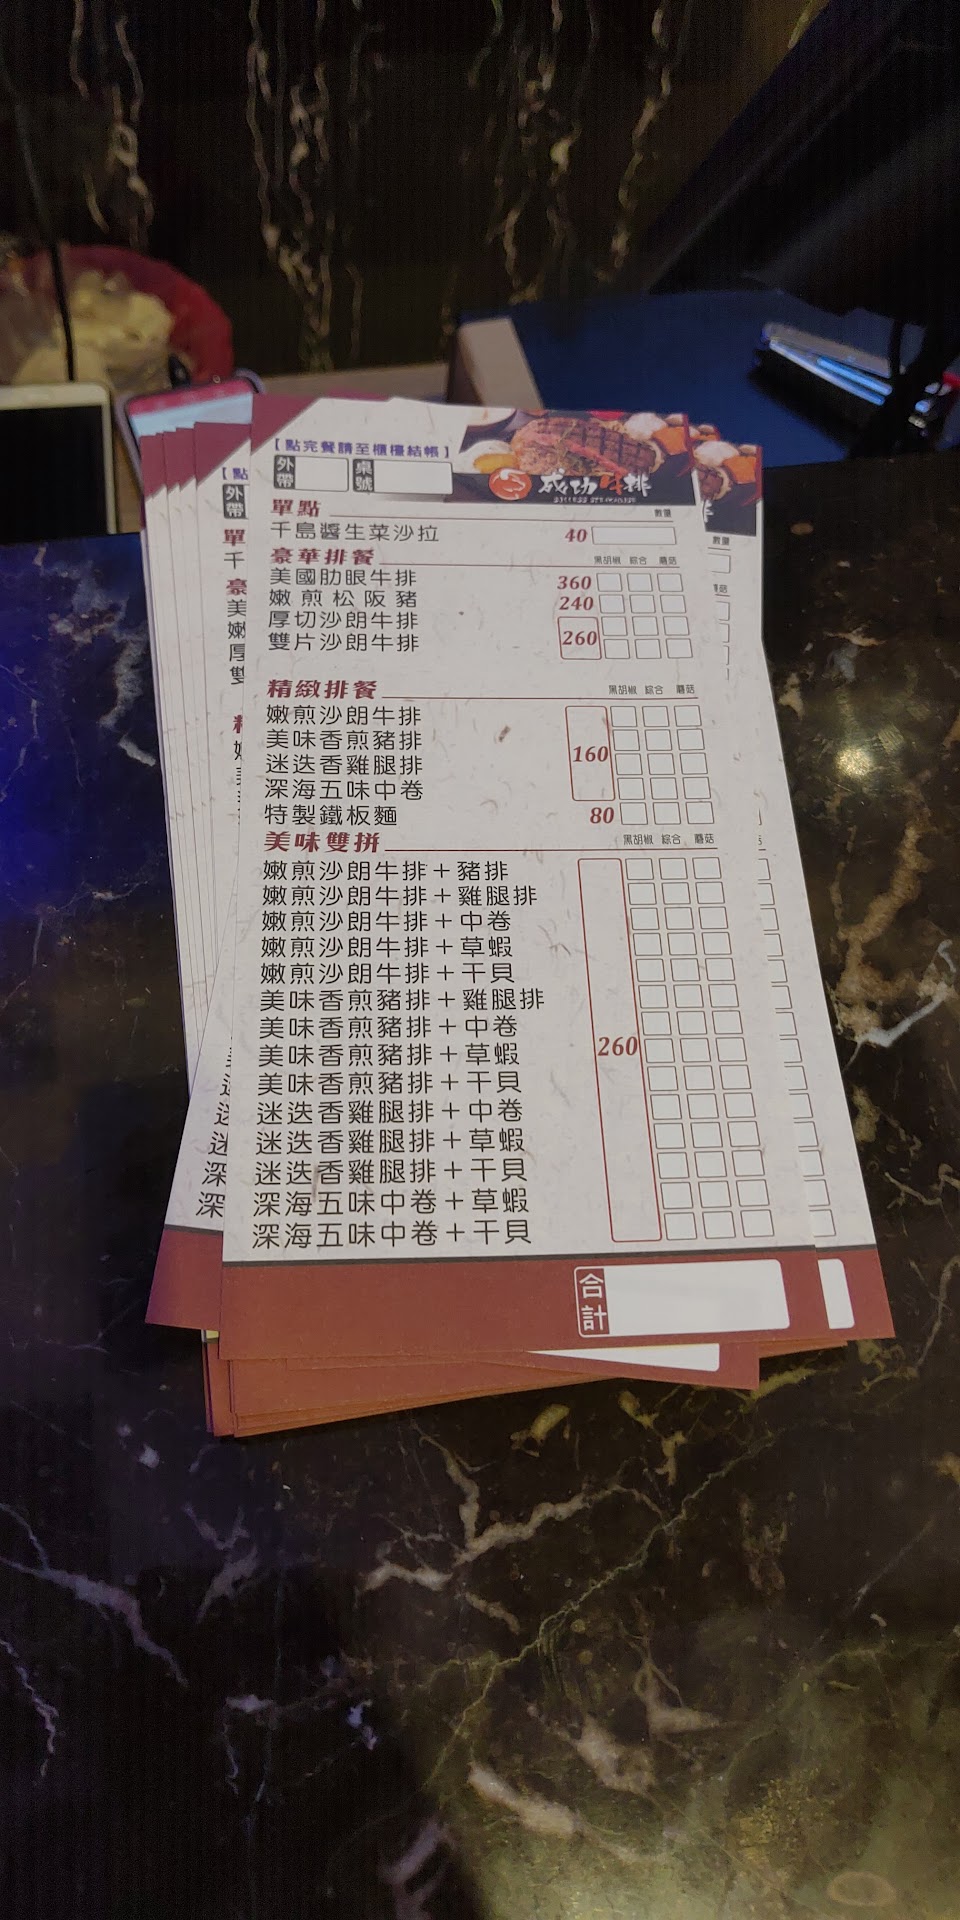 【點完餐請至櫃檯結帳】
外帶 桌號
成功牛排
單點 數量
千島醬生菜沙拉 40
豪華排餐 黑胡椒 綜合 蘑菇
美國肋眼牛排 360
嫩煎松阪豬 240
厚切沙朗牛排
雙片沙朗牛排 260
精緻排餐 黑胡椒 綜合 蘑菇
嫩煎沙朗牛排
美味香煎豬排 160
迷迭香雞腿排
深海五味中卷
特製鐵板麵 80
美味雙拼 黑胡椒 綜合 蘑菇
嫩煎沙朗牛排+豬排
嫩煎沙朗牛排+雞腿排
嫩煎沙朗牛排+中卷
嫩煎沙朗牛排+草蝦
嫩煎沙朗牛排+干貝
美味香煎豬排+雞腿排
美味香煎豬排+中卷 260
美味香煎豬排+草蝦
美味香煎豬排+干貝
迷迭香雞腿排+中卷
迷迭香雞腿排+草蝦
迷迭香雞腿排+干貝
深海五味中卷+草蝦
深海五味中卷+干貝
合計